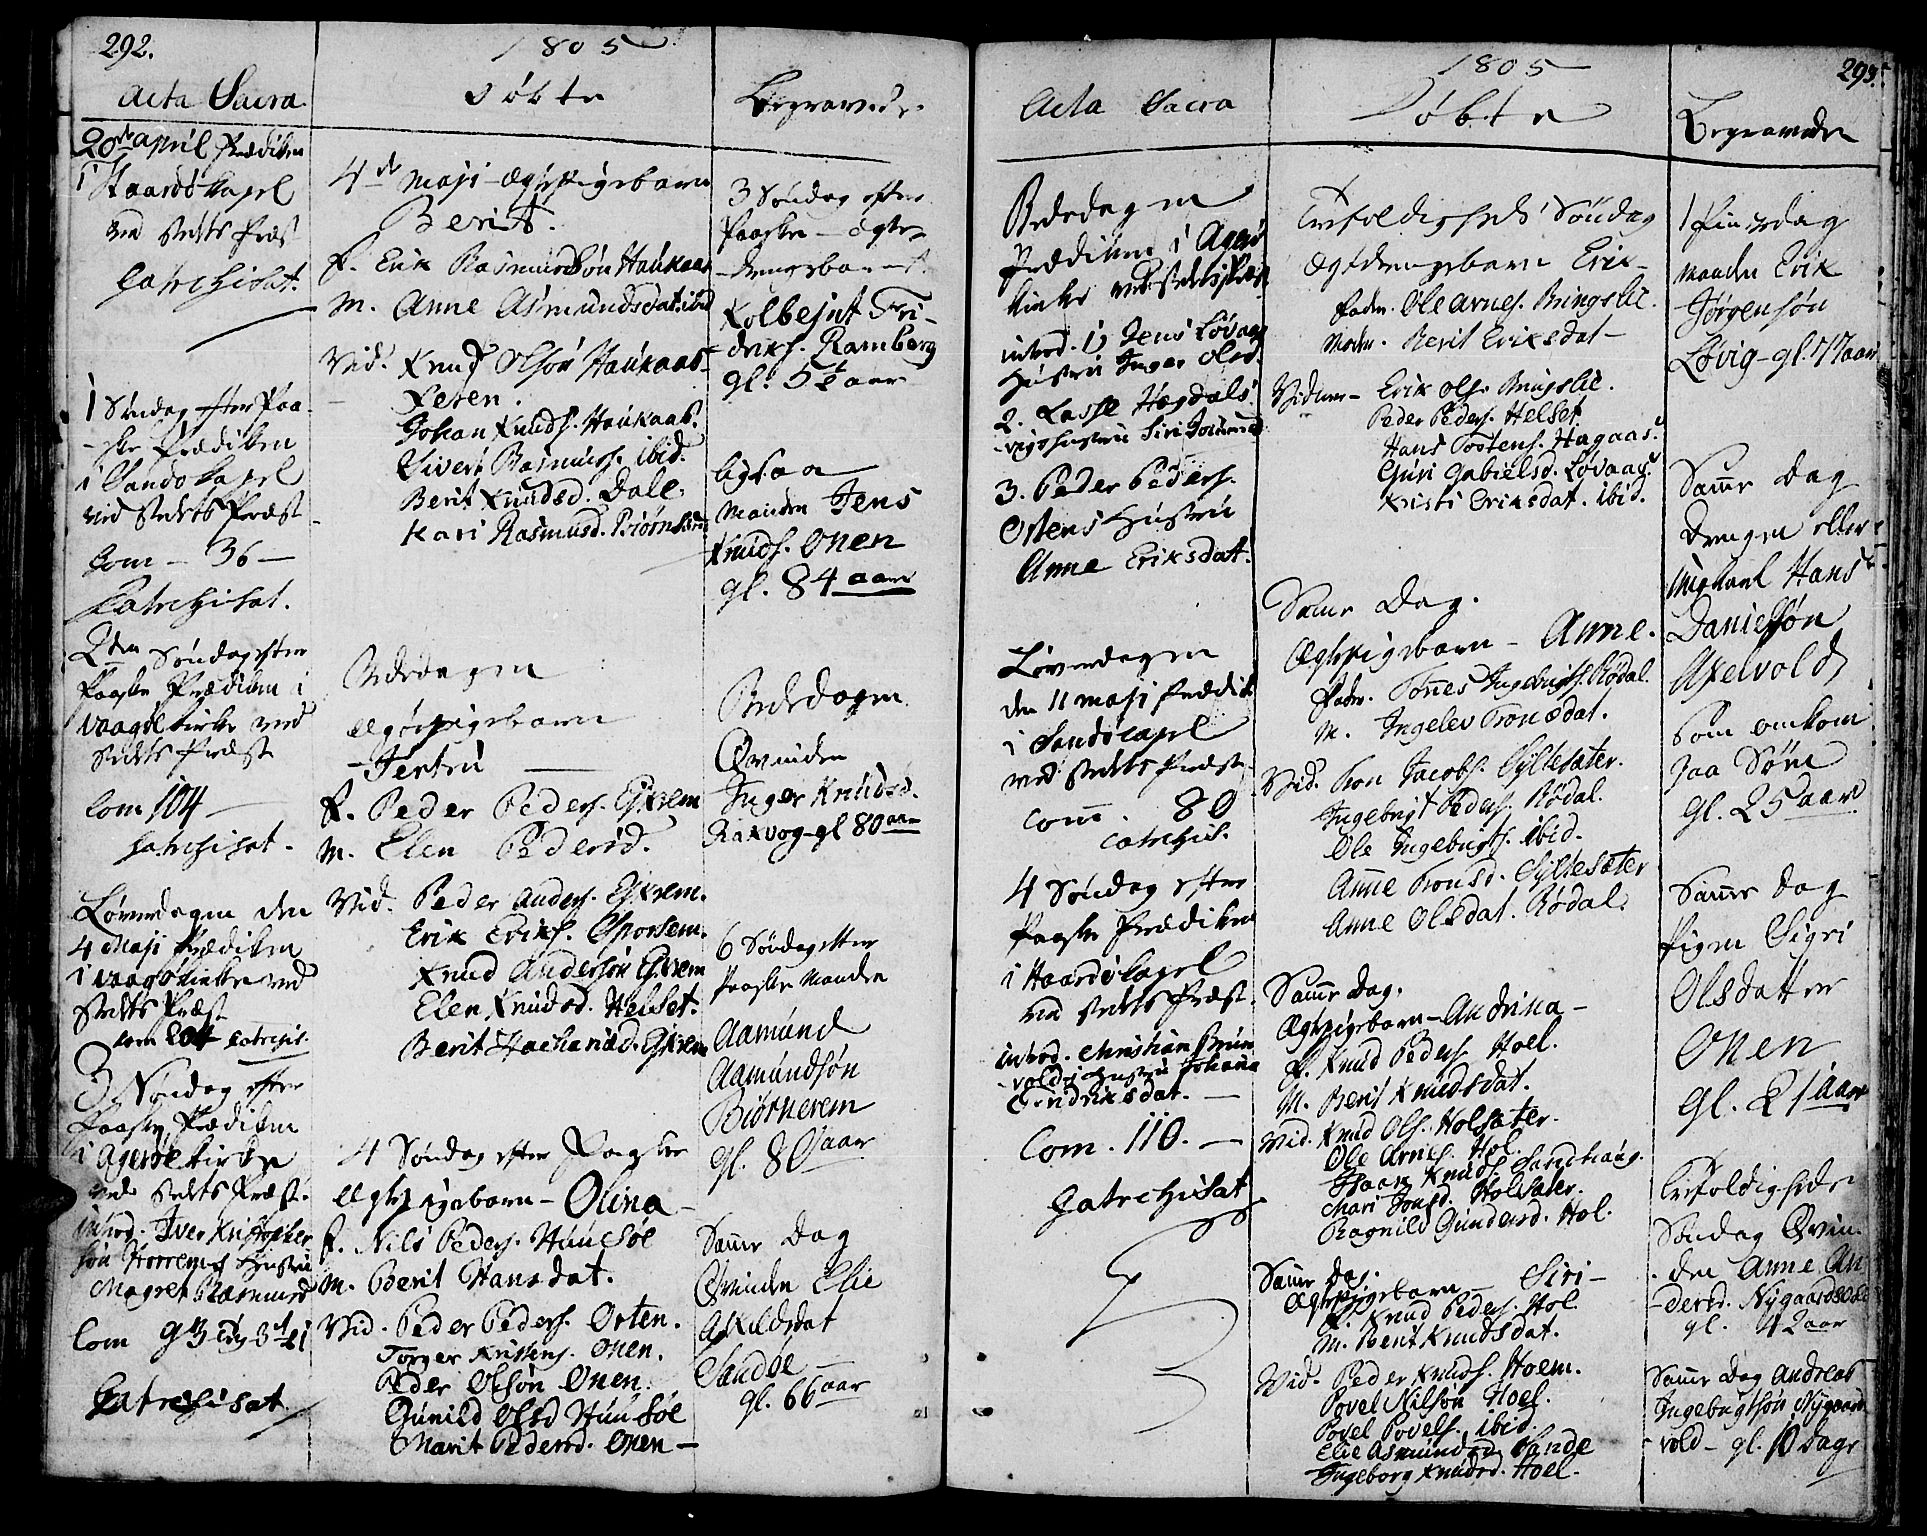 292.
1805
Acta Sacra
Døbte
Begravede
20de April Prædiken
i Haarøe Capel
ved Stedets Præst
Catechisat.
1 Søndag efter Paa-
-ske Prædiken
i Sandø Capel
ved Stedets Præst
Com - 36 -
Catechisat.
2den Søndag efter
Paaske Prædiken i
Vaagøe Kirke ved
Stedets Præst
Com 104 -
Catechisat.
Løverdagen den
4 Maji Prædiken
i Vaagø Kirke ved
Stedets Præst
Com 204 Catechis.
3 Søndag efter
Paaske Prædiken
i Agerøe Kirke
ved Stedets Præst.
introd. Iver Kristopher
søn Hustru
Magret Rasmusd
Com 93
Catechisat
4de Maji - Ægte Pigebarn
Berit.
F. Erik Rasmussøn Haukaas
M. Anne Asmundsdat. ibid
Vid. Knud Olsøn Haukaas
Peten.
Johan Knuds. Haukaas.
Sivert Rasmuss. ibid.
Berit Knudsd. Dale.
Kari Rasmusd.
Bededagen
Ægte Pigebarn
Jertru
F. Peder Peders. Eskrem
M. Elen Pedersd.
Vid. Peder Anders. Eskrem.
Erik Eriks.
Knud Andersøn Eskrem
Elen Knudsd. Helset.
Berit Zachariæd. Eskrem
4 Søndag efter Paaske
Ægte Pigebarn - Olina
F. Nils Peders. Huusøe
M. Berit Hansdat.
Vid. Peder Peders. Orten.
Torger Kristens. Onen.
Peder Olsøn Onen.
Gunild Olsd Huusøe
Marit Pedersd. Onen -
3 Søndag efter
Paaske - Ægte
-drengebarnet
Kolbejnt Fri-
driks. Ramberg
gl. 5 aar
Ligsaa
Manden Jens
Knuds. Onen
gl. 84 aar
Bededagen
Qvinden
Inger Knudsd.
Rakvog - gl 80 aar
6 Søndag efter
Paaske Manden
Aamund
Aamundsøn
Biørnerem
gl. 80 aar.
Samme Dag
Qvinden Elie
Askildsdat
Sandøe
gl. 66 aar
1805
293.
Acta Sacra
Døbte
Begravede
Bededagen
Prædiken i Agerø
Kirke ved Stedets Præst
introd. 1) Jens Løvaas
Hustru Inger Olsd.
2. Lasse Hegdals
vigs Hustru Siri
3. Peder Peders.
Ortens Hustru
Anne Eriksdat.
Løverdagen
den 11 Maji Prædik
i Sandø Capel
ved Stedets Præst.
Com. 80
Catechis.
4 Søndag efter
Paaske Prædiken
i Haarøe Capel
ved Stedets Præst.
introd. Christian Brun
volds Hustru Johana
Hendriksdat. -
Com. 110. -
Catechisat
Trefoldigheds Søndag
Ægte drengebarn Erik -
Fader. Ole Arnes. Bringslie.
Moder. Berit Eriksdat -
Vidner - Erik Ols. Bringslie.
Peder Peders. Helset
Hans Tostens. Hagaas.
Guri Gabrielsd. Løvaas
Kristi Eriksdat. ibid.
Samme Dag.
Ægte Pigebarn - Anne.
Fader. Tønnes Ingebrigts. Rødal.
M. Ingelev Tronsdat.
Vid. Tron Jacobs. Syltesæter.
Ingebrigt Peders. Rødal.
Ole Ingebrigts. ibid.
Anne Tronsd. Syltesæter
Anne Olsdat. Rødal.
Samme Dag.
Ægte Pigebarn - Andrina -
F. Knud Peders. Hoel.
M. Berit Knudsdat.
Vid. Knud Ols. Holsæter.
Ole Arnes. Hol.
Isaac Knuds. Sandhaug.
Mari Jonsd. Holsæter.
Ragnild Gundersd. Hol.
Samme Dag.
Ægte Pigebarn - Siri -
F. Knud Peders. Hol
M. Berit Knudsdat.
Vid. Peder Knuds. Hoem.
Povel Nilsøn Hoel.
Povel Povels. ibid.
Elie Asmundsd. Sande
Ingeborg Knudsd. Hoel.
1 Pinsedag
Manden Erik
Jørgensøn
Løvig - gl. 77 aar
Samme Dag
Drengen eller
Ungkarl Hans
Danielsøn
Axelvold
som omkom
paa Søen
gl. 25 aar
Samme Dag
Pigen Sigri
Olsdatter
Onen
gl. 21 aar
Trefoldigheds
Søndag Qvin-
-den Anne An
-dersd. Nygaardsvold
gl. 42 aar
Samme Dag Andreas
Ingebrigtsøn Nygaard
-vold - gl. 10 Dage